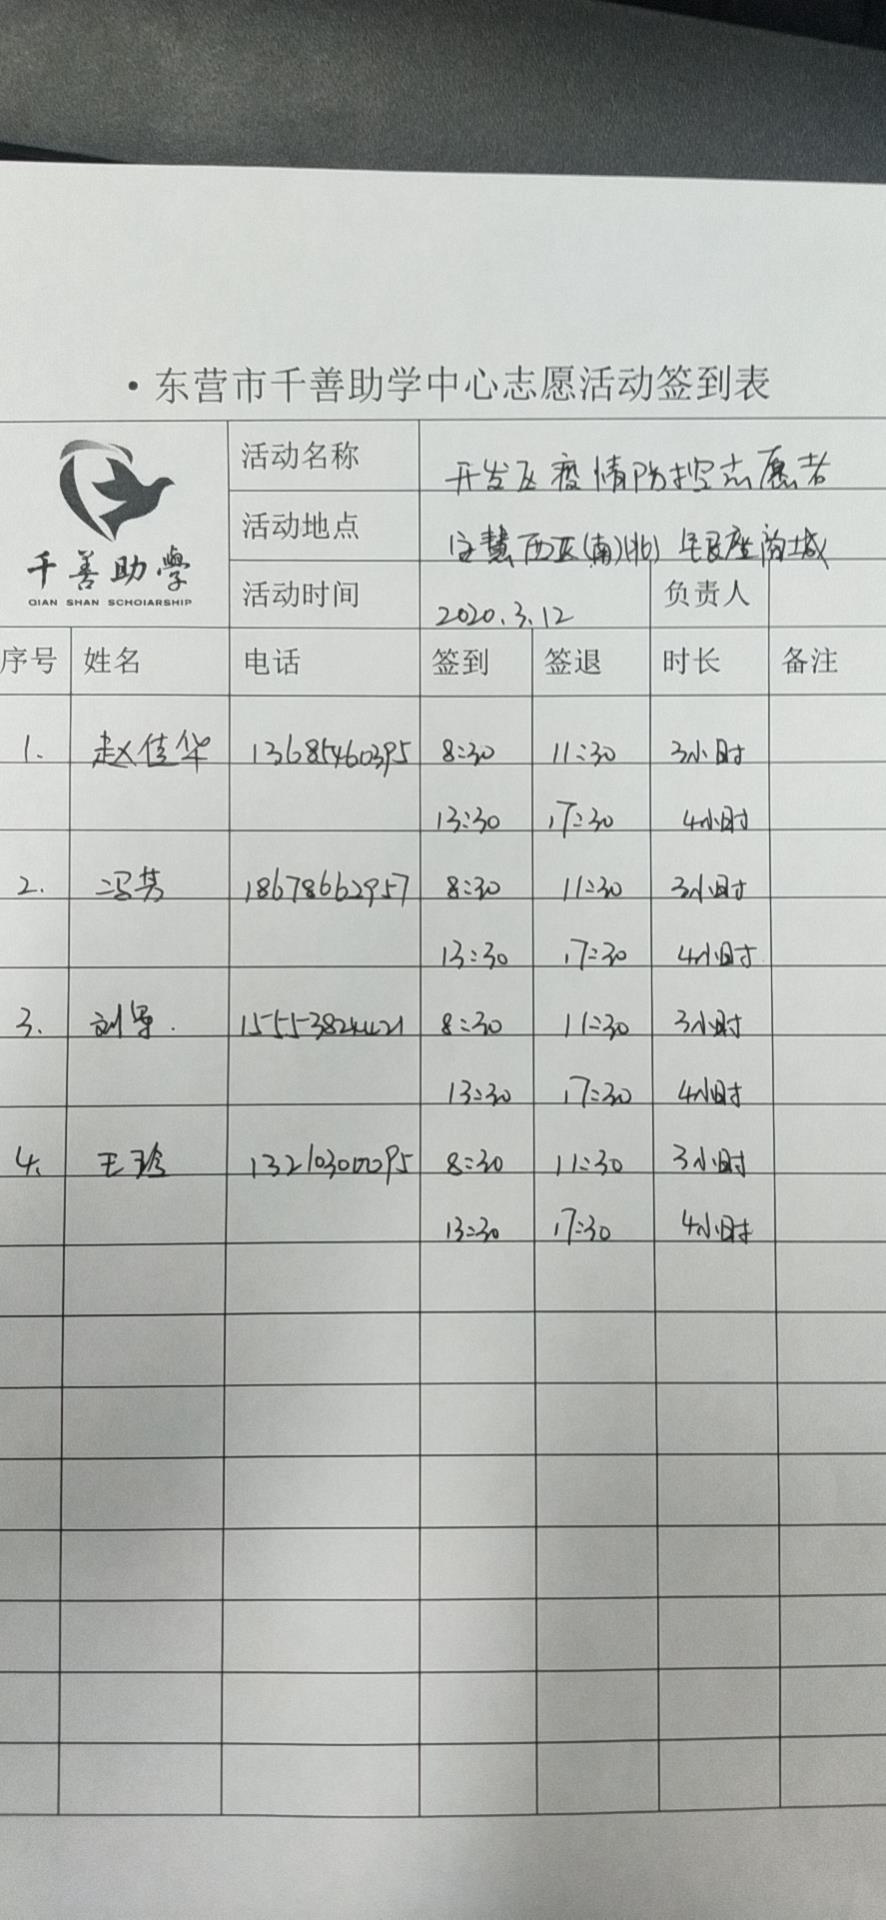 ·东营市千善助学中心志愿活动签到表
千善助學
QIAN SHAN SCHOIARSHIP
活动名称 开发区疫情防控志愿者
活动地点 慧西区(南)(北) 银座商城
活动时间 2020.3.12 负责人
序号 姓名 电话 签到 签退 时长 备注
1. 赵佳华 13685460395 8:30 11:30 3小时
13:30 17:30 4小时
2. 冯芳 18678662957 8:30 11:30 3小时
13:30 17:30 4小时
3. 刘军. 15553824421 8:30 11:30 3小时
13:30 17:30 4小时
4. 王玲 13210300095 8:30 11:30 3小时
13:30 17:30 4小时